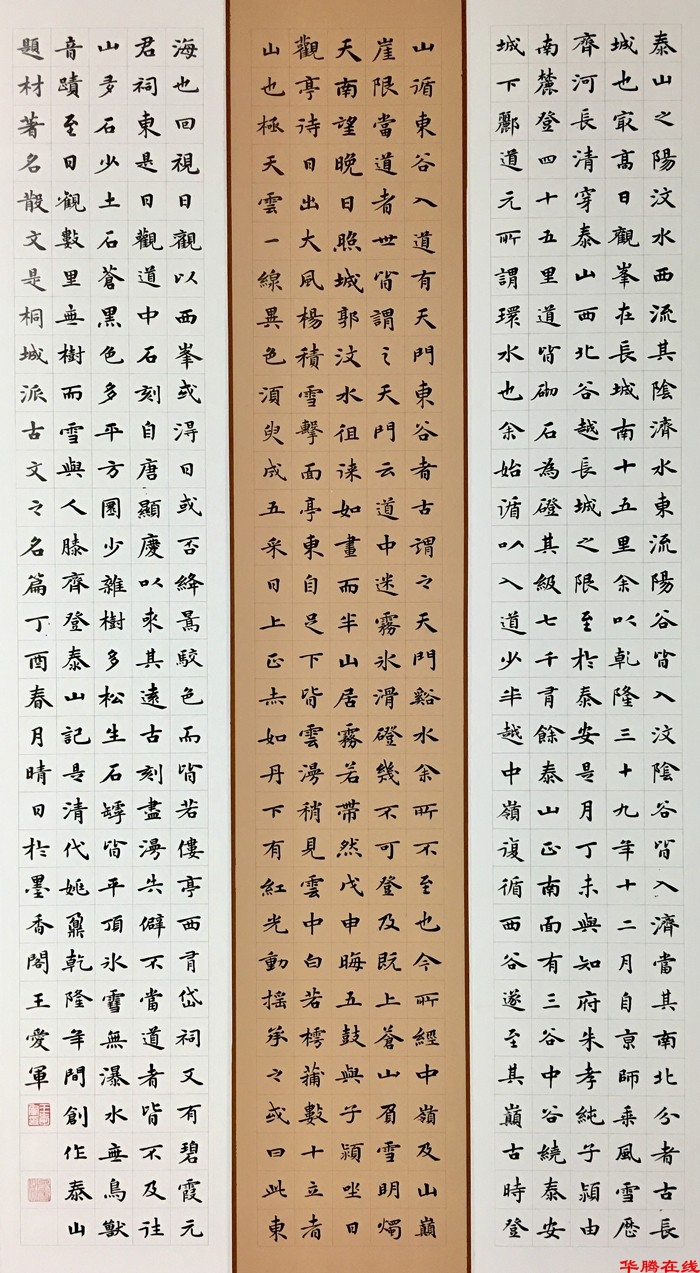 泰山之陽汶水西流其陰濟水東流陽谷皆入汶陰谷皆入濟當其南北分者古長
城也最高日觀峯在長城南十五里余以乾隆三十九年十二月自京師乘風雪歷
齊河長清穿泰山西北谷越長城之限至於泰安是月丁未與知府朱孝純子潁由
南麓登四十五里道皆砌石為磴其級七千有餘泰山正南面有三谷中谷繞泰安
城下酈道元所謂環水也余始循以入道少半越中嶺復循西谷遂至其巔古時登
山循東谷入道有天門東谷者古謂之天門谿水余所不至也今所經中嶺及山巔
崖限當道者世皆謂之天門云道中迷霧冰滑磴幾不可登及既上蒼山負雪明燭
天南望晚日照城郭汶水徂徠如畫而半山居霧若帶然戊申晦五鼓與子潁坐日
觀亭待日出大風楊積雪擊面亭東自足下皆雲漫稍見雲中白若樗蒲數十立者
山也極天雲一線異色須臾成五采日上正赤如丹下有紅光動搖承之或曰此東
海也回視日觀以西峯或得日或否絳皜駮色而皆若僂亭西有岱祠又有碧霞元
君祠東是日觀道中石刻自唐顯慶以來其遠古刻盡漫失僻不當道者皆不及往
山多石少土石蒼黑色多平方圜少雜樹多松生石罅皆平頂冰雪無瀑水無鳥獸
音蹟至日觀數里無樹而雪與人膝齊登泰山記是清代姚鼐乾隆年間創作泰山
題材著名散文是桐城派古文之名篇丁酉春月晴日於墨香閣王愛軍
华腾在线